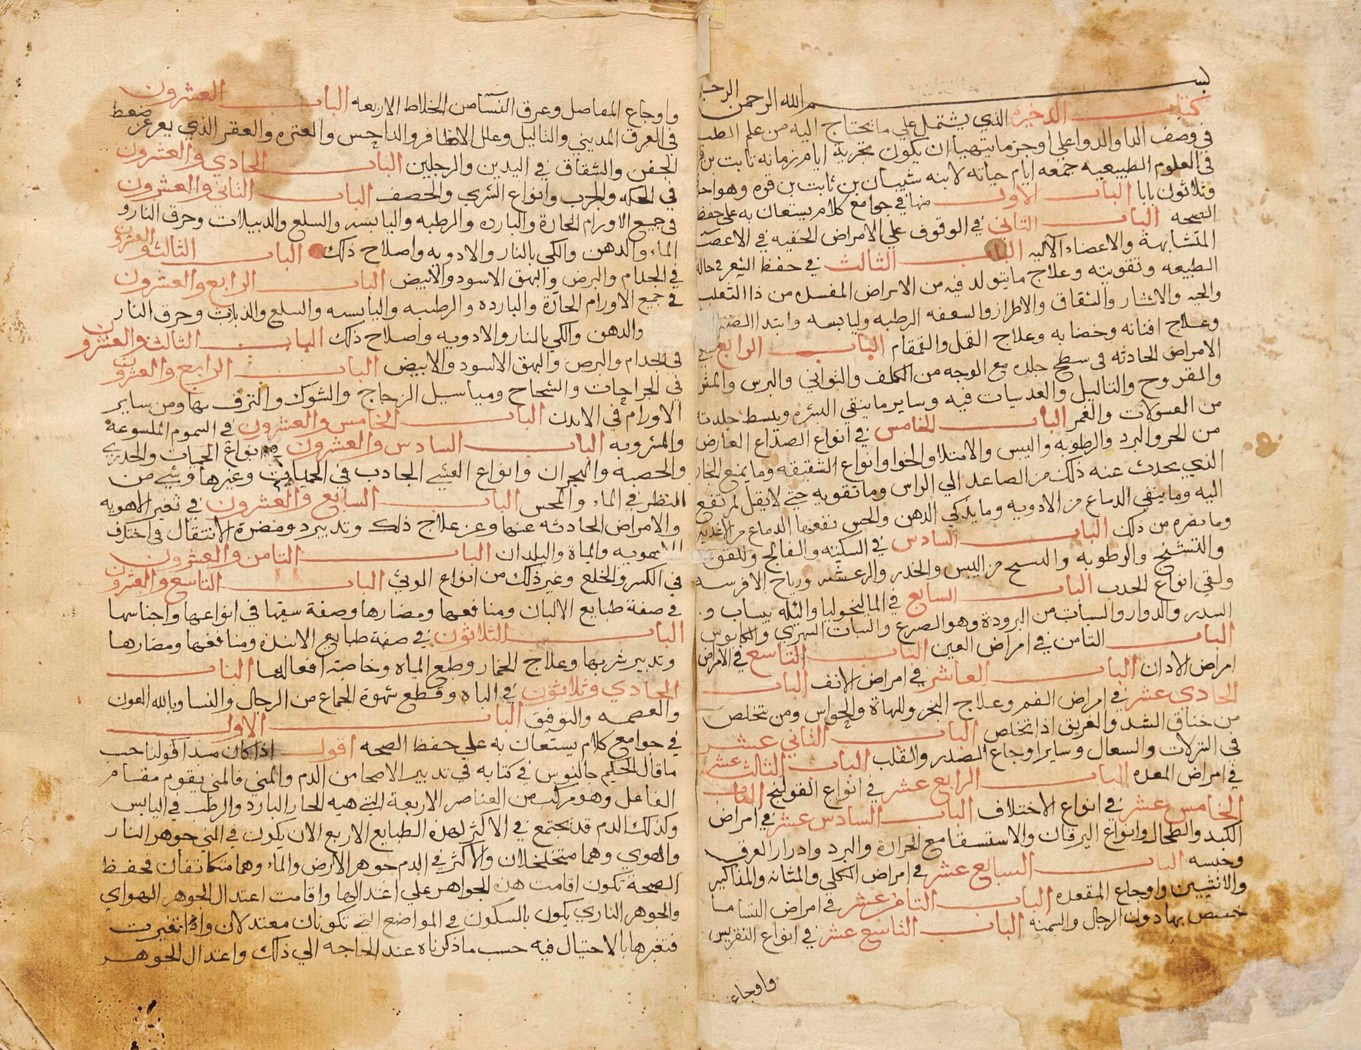 بسم الله الرحمن الرحيم
كتاب الذخيره الذي يشتمل على ما يحتاج اليه من علم الطب
في وصف الدا والدوا على اوجز ما يتهيا ان يكون تجربة ايام زمانه ثابت بن قره
في العلوم الطبيعيه جمعه ايام حياته لابنه سنان بن ثابت بن قره وهو احد
وثلاثون بابا الباب الاول منها في جوامع كلام يستعان به على حفظ
الصحه الباب الثاني في الوقوف على الامراض الخفيه في الاعضا
المتشابهة والاعضاء الآليه الباب الثالث في حفظ الشعر في حاله
الطبيعه وتقويته وعلاج ما يتولد فيه من الامراض المفسده من ذا الثعلب
والحيه والانتثار والشقاق والاطراز والسعفه الرطبه واليابسه وابتدا الصلع
وعلاج افنانه وخضابه وعلاج القمل والقمقام الباب الرابع في
الامراض الحادثه في سطح جلده مع الوجه من الكلف والثواني والبرس والنمش
والقروح والثاليل والعدسيات فيه وساير ما ينقي البشره ويبسط جلدته
من الغسولات والغمر الباب الخامس في انواع الصداع العارض
من الحر والبرد والرطوبه واليبس والامتلا والخوا وانواع الشقيقه وما يمنع البخار
الذي يحدث عنه ذلك من الصاعد الى الراس وما تقويه حتى لا يقبل لم تقع
اليه وما ينقي الدماغ من الادويه وما يذكي الذهن والحس نفعها الدماغ من الاغذيه
وما يضره من ذلك الباب السادس في السكته والفالج واللقوه
والتشنج والرطوبه والتشنج من اليبس والخدر والرعشه ورياح الافرسه
ولقي انواع الحدب الباب السابع في الماليخوليا والتله يساب و
السدر والدوار والسبات من البرودة وهو الصرع والسبات السهري والكابوس
الباب الثامن في امراض العين الباب التاسع في الامراض
امراض الاذان الباب العاشر في امراض الانف الباب
الحادى عشر في امراض الفم وعلاج البخر واللهاة والخواص ومن تتخلص
من خناق الشد والغريق اذا تخلص الباب الثاني عشر
في النزلات والسعال وساير اوجاع الصدر والقلب الباب الثالث عشر
في امراض المعده الباب الرابع عشر في انواع القولنج الباب
الخامس عشر في انواع الاختلاف الباب السادس عشر في امراض
الكبد والطحال وانواع اليرقان والاستسقا مع الحرارة والبرد وادرار العرق
وحبسه الباب السابع عشر في امراض الكلى والمثانه والمذاكير
والانثيين واوجاع المقعده الباب الثامن عشر في امراض النسا ما
خصص بها دون الرجال والسمنه الباب التاسع عشر في انواع النقريس
واوجاع
واوجاع المفاصل وعرق النسا من الخلاط الاربعه الباب العشرون
في العرق المديني والثاليل وعلل الاظافر والداحس والعثره والعقر الذي يعرض ضغط
الخفين والشقاق في اليدين والرجلين الباب الحادي والعشرون
في الحكه والجرب وانواع الشري والحصف الباب الثاني والعشرون
في جميع الاورام الحارة والبارده والرطبه واليابسه والسلع والدبيلات وحرق النار و
الماء والدهن والكي بالنار والادويه واصلاح ذلك الباب الثالث والعشرون
في الجذام والبرص والبهق الاسود والابيض الباب الرابع والعشرون
في جميع الاورام الحارّة والبارده والرطبيه واليابسيه والسلع والدبيلات وحرق النار
والدهن والكي بالنار والادويه واصلاح ذلك الباب الثالث والعشرون
في الجذام والبرص والبهق الاسود والابيض الباب الرابع والعشرون
في الجراحات والشجاح وميا سيل الزجاج والشوك والنزف بها ومن ساير
الاورام في الابدن الباب الخامس والعشرون في السموم الملسوعة
والمشروبه الباب السادس والعشرون في انواع الحميات والجدري
والحصبه والبحران وانواع الغشي الجاذب في الحميات وغيرها وشيء من
النظر في الماء والحس الباب السابع والعشرون في تغير الاهويه
والامراض الحادثه عنها وعن علاج ذلك وتدبير دو مضرة الانتقال في اختلاف
الاهويه والمياة والبلدان الباب الثامن والعشرون
في الكسر والخلع وغير ذلك من انواع الوثي الباب التاسع والعشرون
في صفة طبايع الالبان ومنافعها ومضارها وصفة سقيها في انواعها واجناسها
الباب الثلاثون في صفة طبايع الانبذه ومنافعها ومضارها
وتدبير شربها وعلاج الخمار وطبع المياه وخاصة افعالها الباب
الحادي وثلاثون في الباه وقطع شهوة الجماع من الرجال والنسا وبالله العون
والعصمه والتوفيق الباب الاول
في جوامع كلام يستعان به على حفظ الصحه اقول اذا كان مبدا قولنا حسب
ما قال الحكيم جالينوس في كتابه في تدبير الاصحا من الدم والمني فالمني يقوم مقام
الفاعل وهو مركب من العناصر الاربعة التي هيه الحار البارد والرطب في اليابس
وكذلك الدم قد تجتمع في الاكثر لهذه الطبايع الاربع الا ان يكون في المني جوهر النار
والهوي وهما متخلخلان والاكثر في الدم جوهر الارض والماء وهما متكاثفان فحفظ
الصحة تكون اقامت هذه الجواهر على اعتدالها واقامت اعتدال الجوهر الهوايي
والجوهر الناري يكون بالسكون في المواضع التي تكونان معتدلان واذا تغيرت
فتغيرها بالاحتيال فيه حسب ما ذكرناه عند الحاجه الي ذلك واعتدال الجوهر